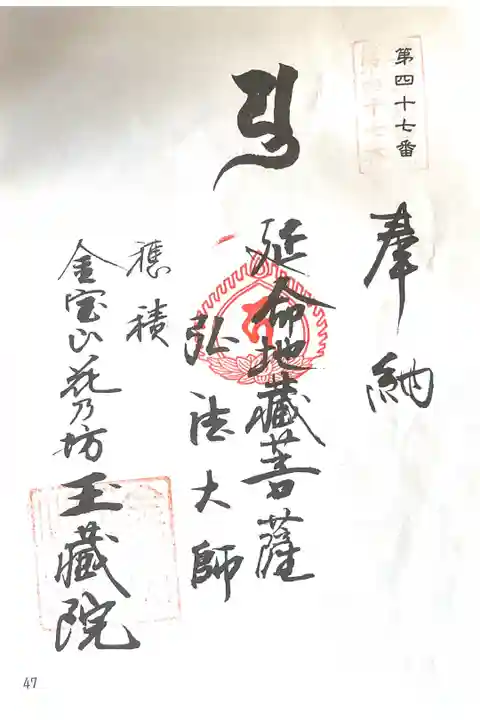 第四十七番
奉納
延命地蔵菩薩
弘法大師
穂積
金宝山花乃坊
玉蔵院
47